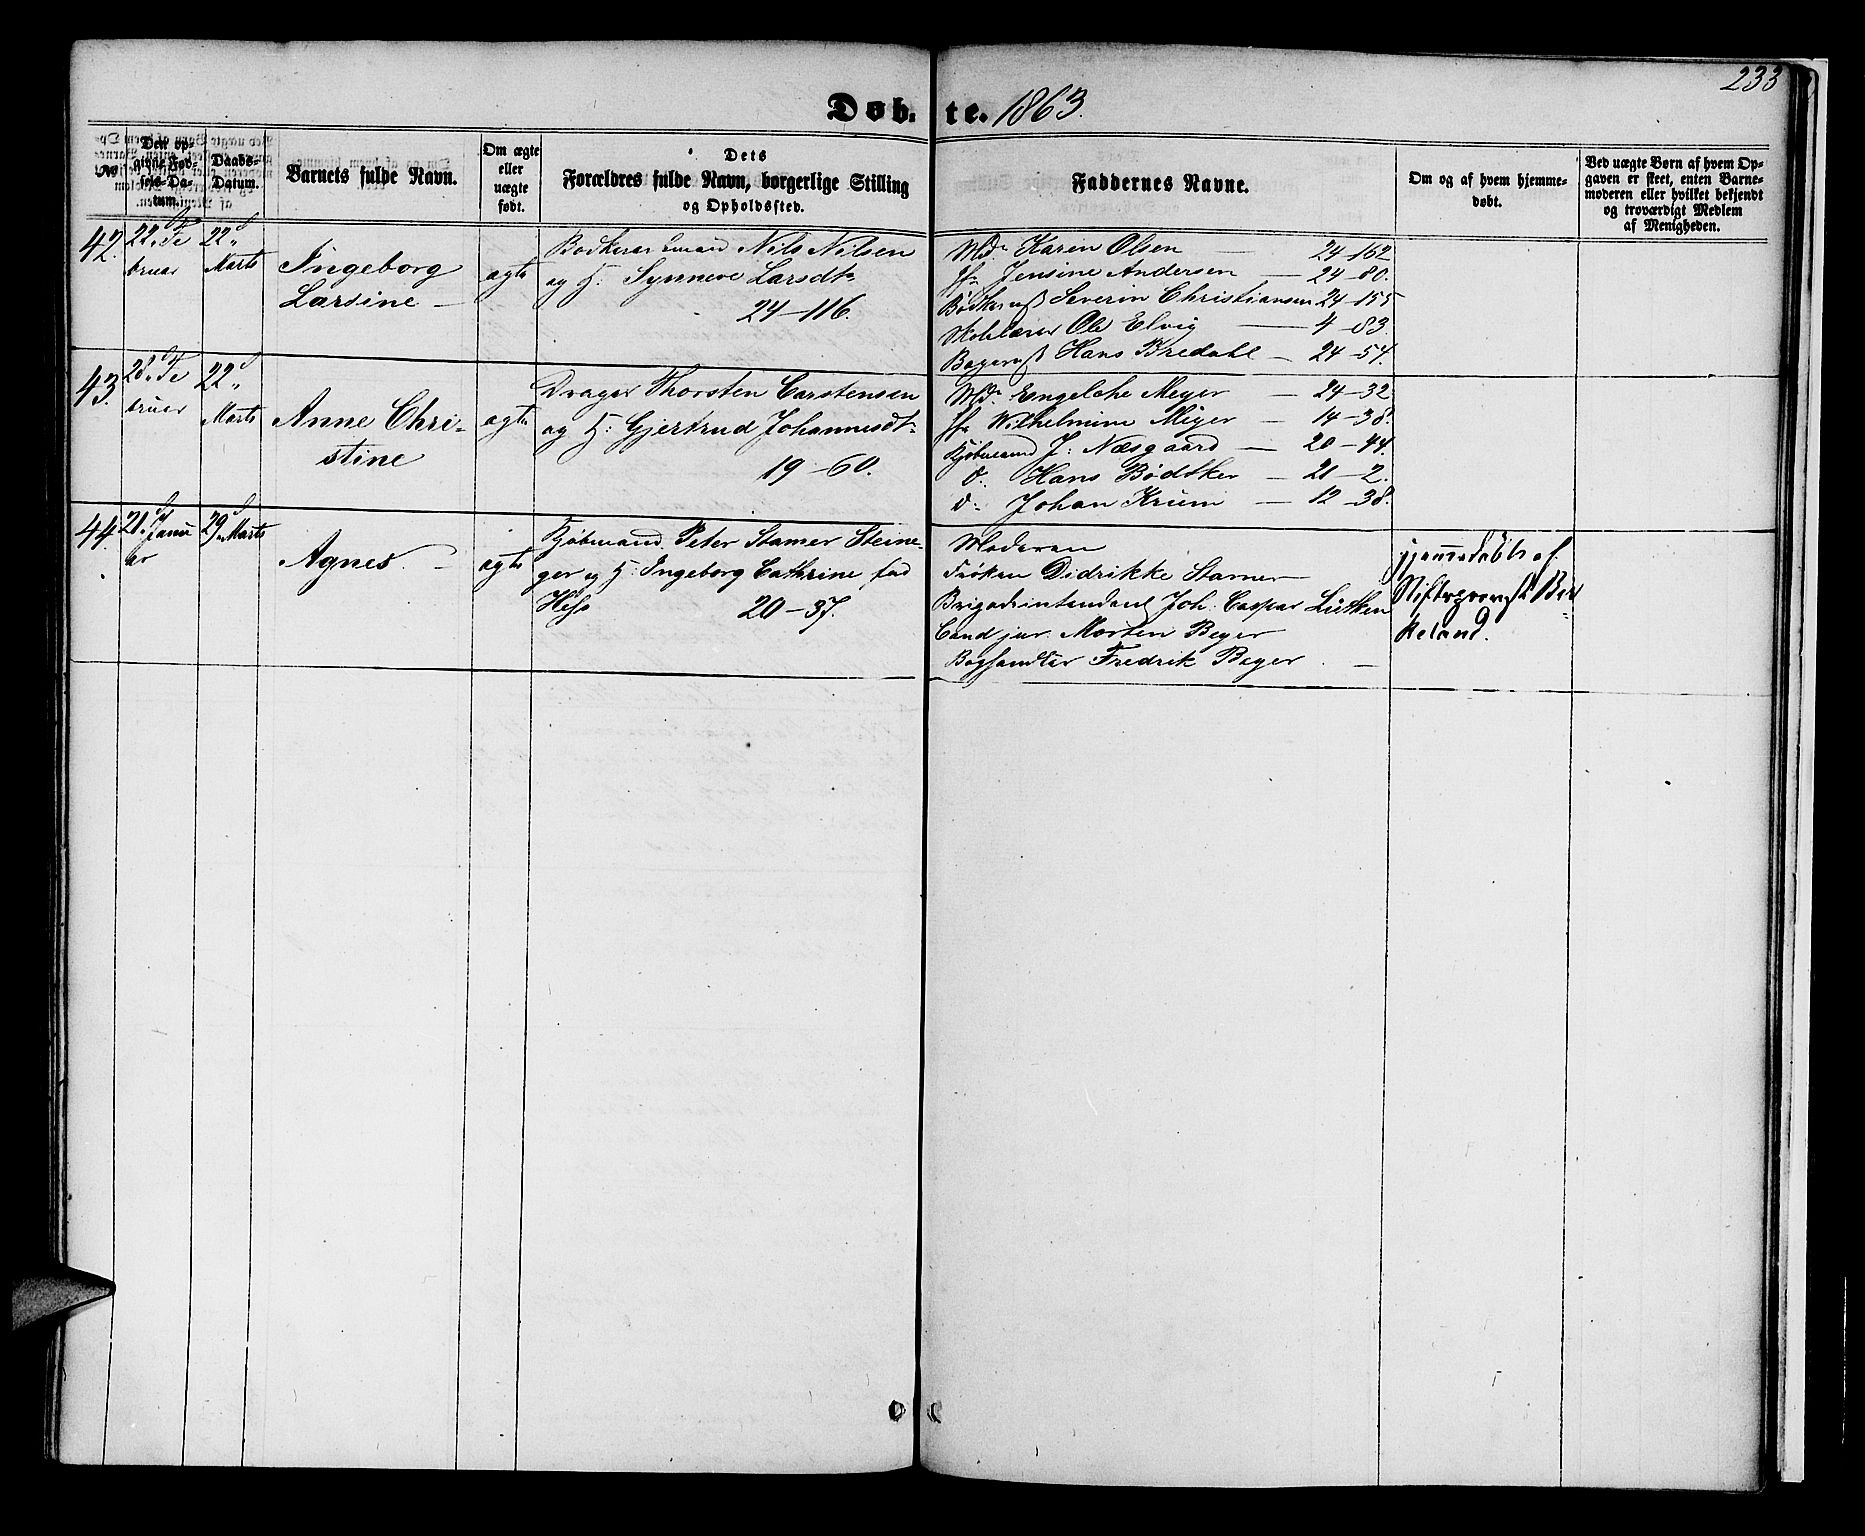 233
Døbte. 1863.
No
Den op-
givne Fød-
sels-Da-
tum.
Daabs-
Datum.
Barnets fulde Navn.
Om ægte
eller
uægte
født.
Dets
Forældres fulde Navn, borgerlige Stilling
og Opholdssted.
Faddernes Navne.
Om og af hvem hjemme-
døbt.
Ved uægte Børn af hvem Op-
gaven er skeet, enten Barne-
moderen eller hvilket bekjendt
og troværdigt Medlem
af Menigheden.
42.
22. Fe
bruar
22"
Marts
Ingeborg
Larsine
ægte
Nils Nilsen
og H: Synneve Larsdt.
24-116.
Md. Karen Olsen 24-162
Jfr Jensine Andersen 24-80.
Severin Christiansen 24-155
Skolelærer Ole Elvig 4-83.
Hans Bredahl 24-54.
43.
28. Fe
bruar
22"
Marts
Anne Chri-
stine
ægte
Drager Thorsten Carstensen
og H: Gjertrud Johannesdt.
19-60.
Md. Engelche Meyer 24-32
Jfr Wilhelmine Meyer 14-38.
Kjøbmand J: Næsgaard 20-44.
d. Hans Bødtker 21-2.
d. Johan Krum 12-38.
44.
21. Janu
ar
29. Marts
Agnes
ægte
Kjøbmand Peter Stamer Steine-
ger og H: Ingeborg Cathrine fød
Hess 20-37.
Moderen
Frøken Didrikke Stamer
Brigadeintendant Joh. Caspar Lütken
Cand jur. Morten Beyer
Boghandler Fredrik Beyer
hjemmedøbt af
Stiftsprovst Bir
keland.